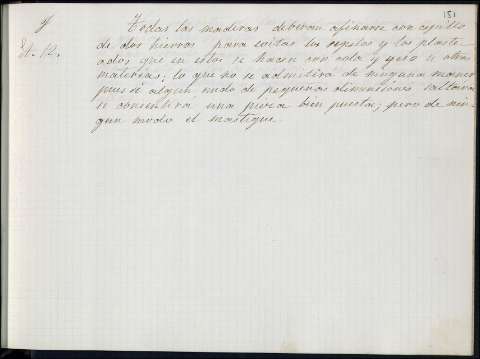 151
Todas las maderas deberan afinarse con cepillo
de dos hierros para evitar los repelos y los plaste-
cidos que en ellos se hacen con cola y yeso u otras
materias; lo que no se admitira de ninguna mane
pues si algun nudo de pequeñas dimensiones saltara
se consentira una pieza bien puesta; pero de nin-
gun modo el mastique.